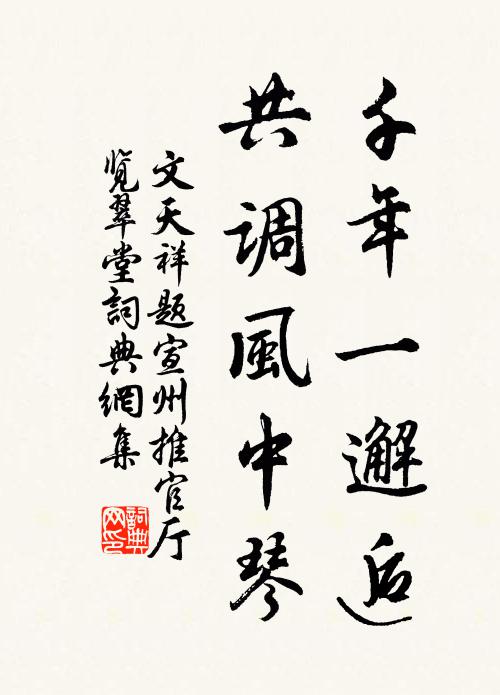 千年一邂逅
共調風中琴
文天祥题宣州推官厅
览翠堂詞典網集
詞典网印